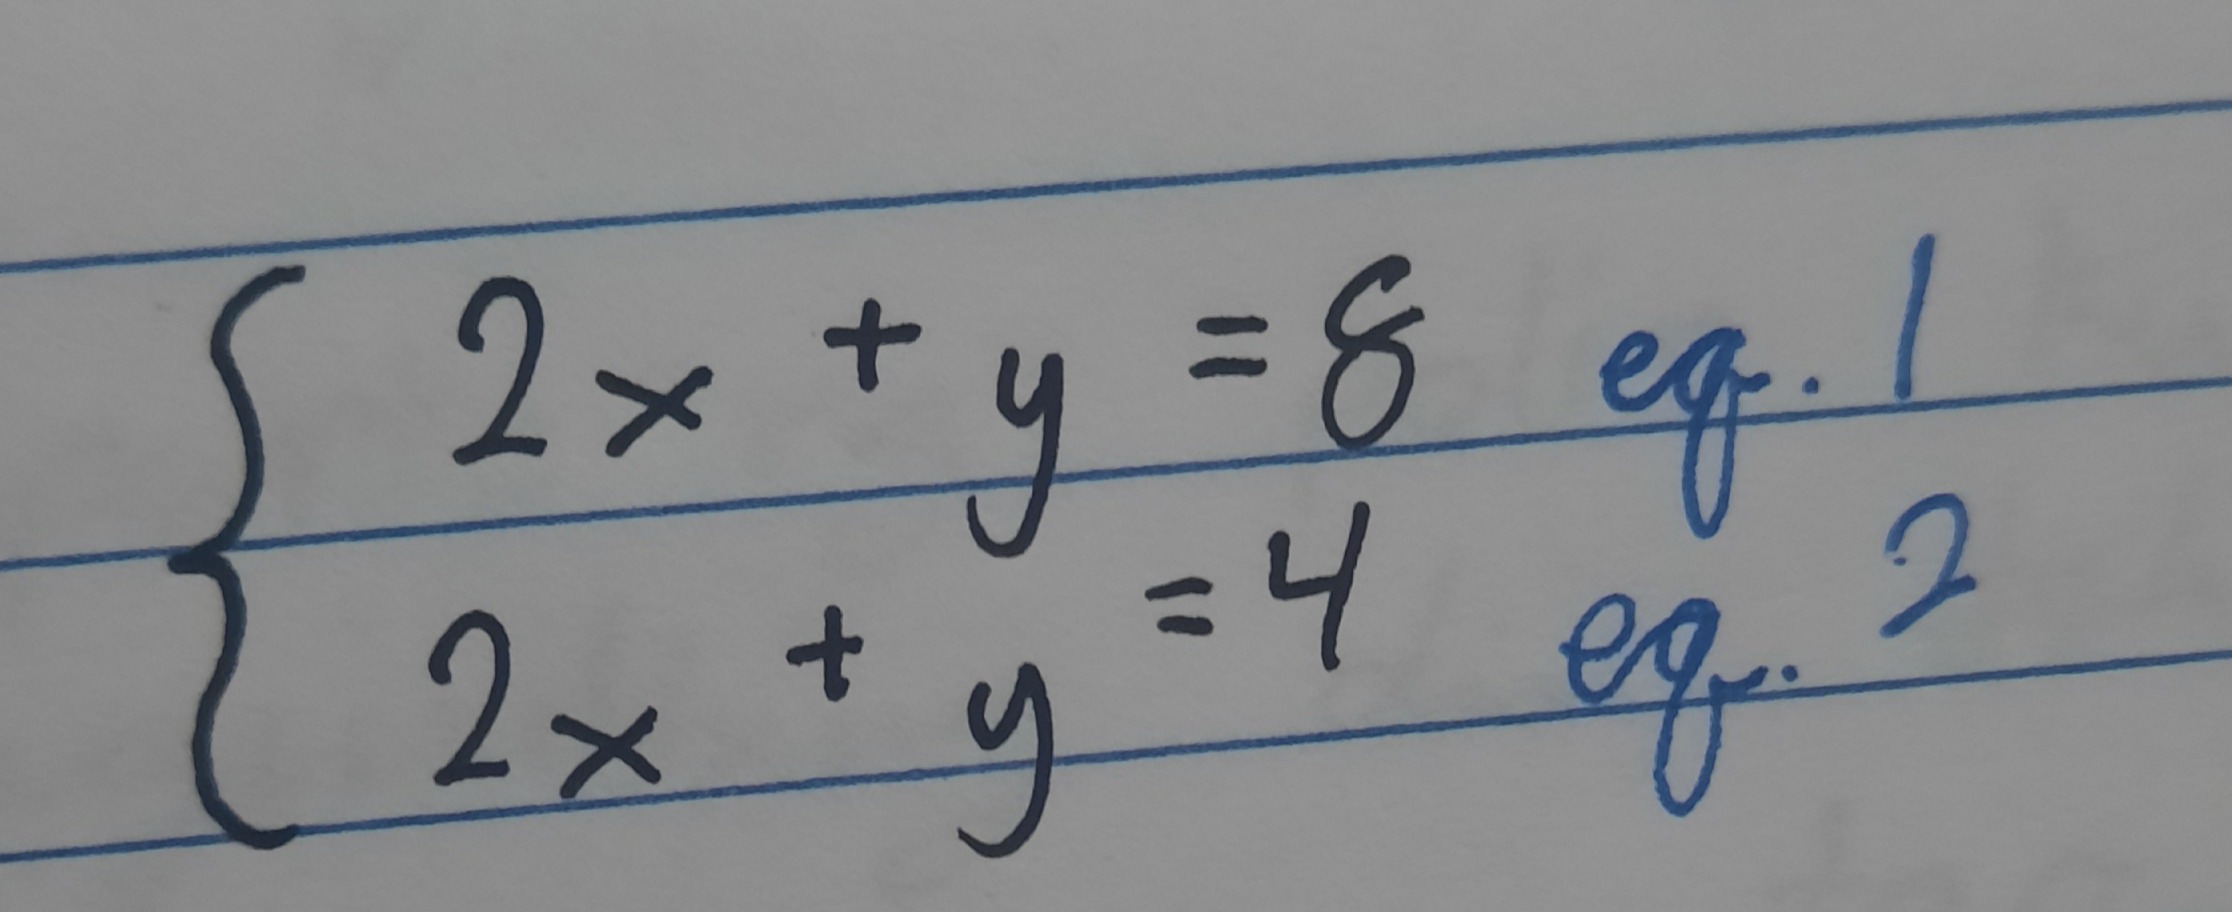 2x + y = 8 eq. 1
2x + y = 4 eq. 2